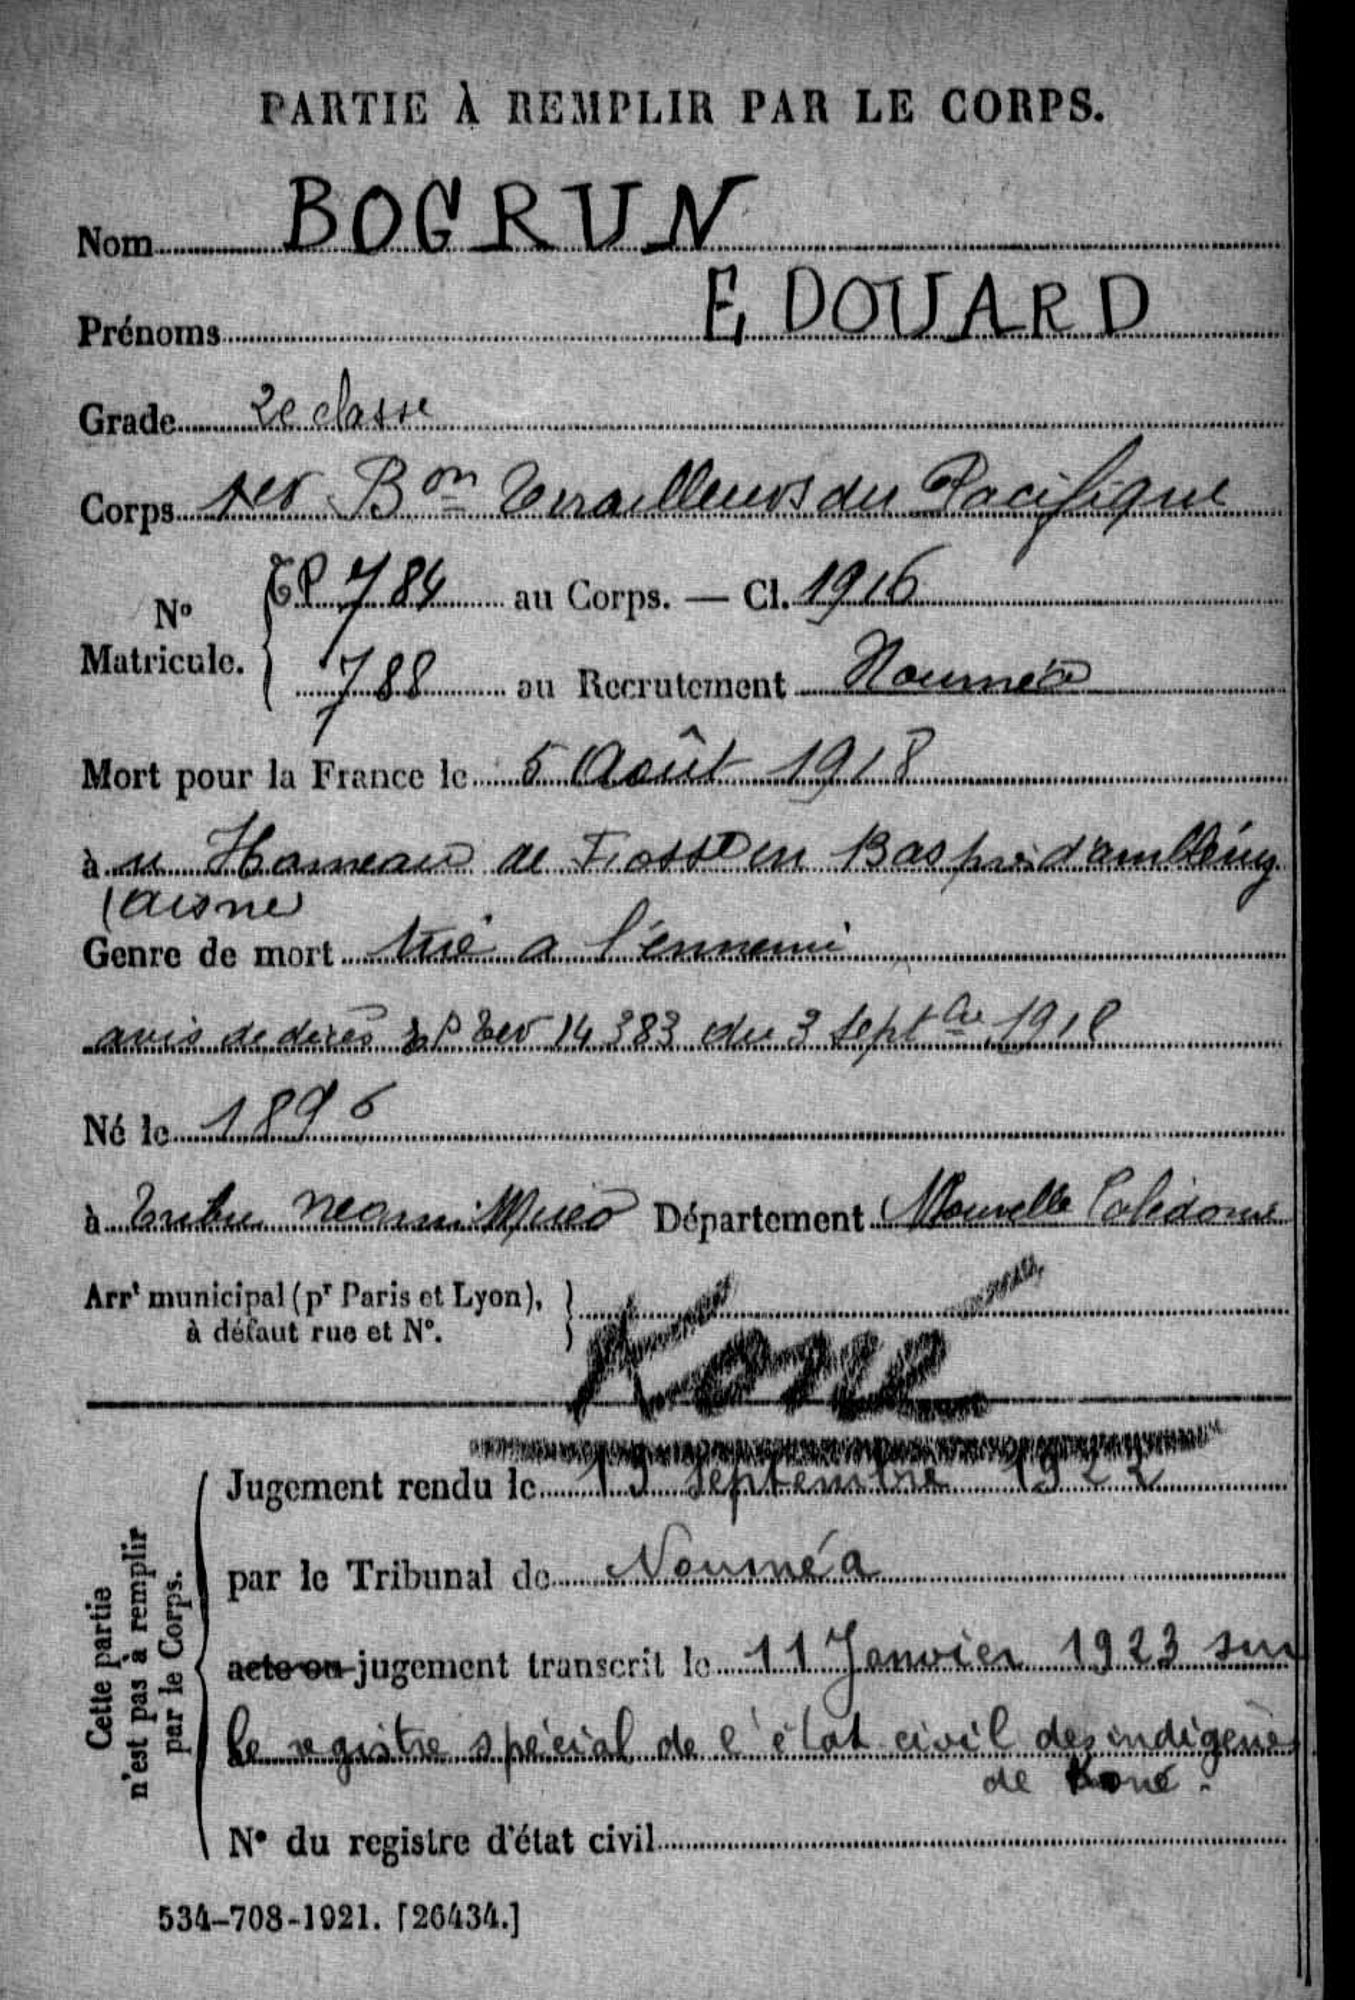 PARTIE À REMPLIR PAR LE CORPS.
Nom BOGRUN
Prénoms EDOUARD
Grade 2e classe
Corps 1er Bon Tirailleurs du Pacifique
No Matricule.
TP 784 au Corps. — Cl. 1916
788 au Recrutement Nouméa
Mort pour la France le 5 Août 1918
à Hameau de en Bas près d'ambleny
(aisne
Genre de mort tué a l'ennemi
avis de décès 14 383 du 3 septbre 1918
Né le 1896
à tribu Département Nouvelle Calédonie
Arrt municipal (pr Paris et Lyon),
à défaut rue et No.
Koné
Cette partie
n'est pas à remplir
par le Corps.
Jugement rendu le septembre 1922
par le Tribunal de Nouméa
acte ou jugement transcrit le 11 Janvier 1923 sur
le registre spécial de l'état civil des indigènes
de Koné.
No du registre d'état civil
534-708-1921. [26434.]